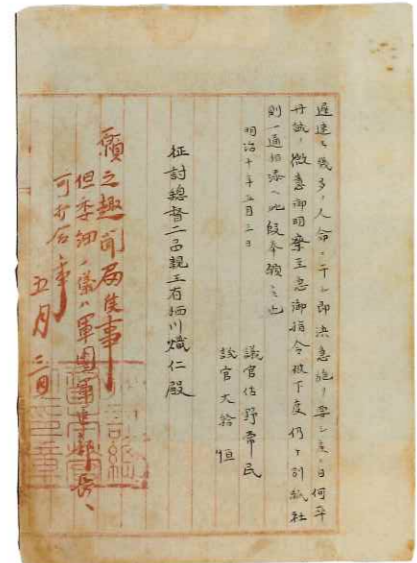 遅速ハ幾多ノ人命ニ干シ即決急施ヲ要シ何卒
丹誠ノ微意御明察至急御指令被下度仍テ別紙社
則一通相添ヘ此段奉願候也
明治十年五月三日
議官佐野常民
議官大給恒
征討總督二品親王有栖川熾仁殿
願之趣聞届候事
但委細ノ儀ハ軍團軍医部長ヘ
可打合事
五月三日